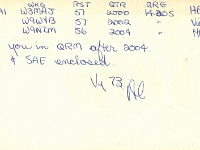 WKG RST QTR QRG
W3MAJ 57 2000 14.205
W9WYB 57 2002
W9NZM 56 2004
you in QRM after 2004
& SAE enclosed.
Vy 73